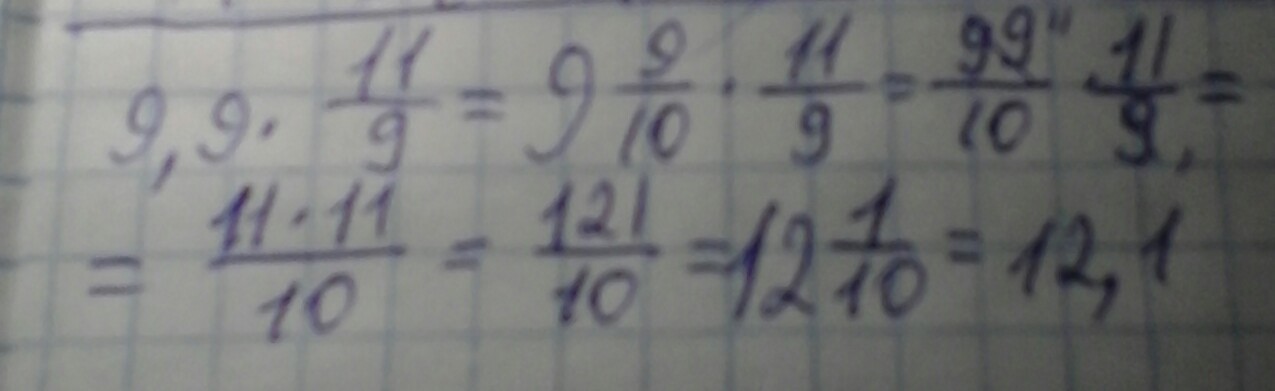 9,9 · 11/9 = 9 9/10 · 11/9 = 99¹¹/10 11/9 =
= 11·11/10 = 121/10 = 12 1/10 = 12,1